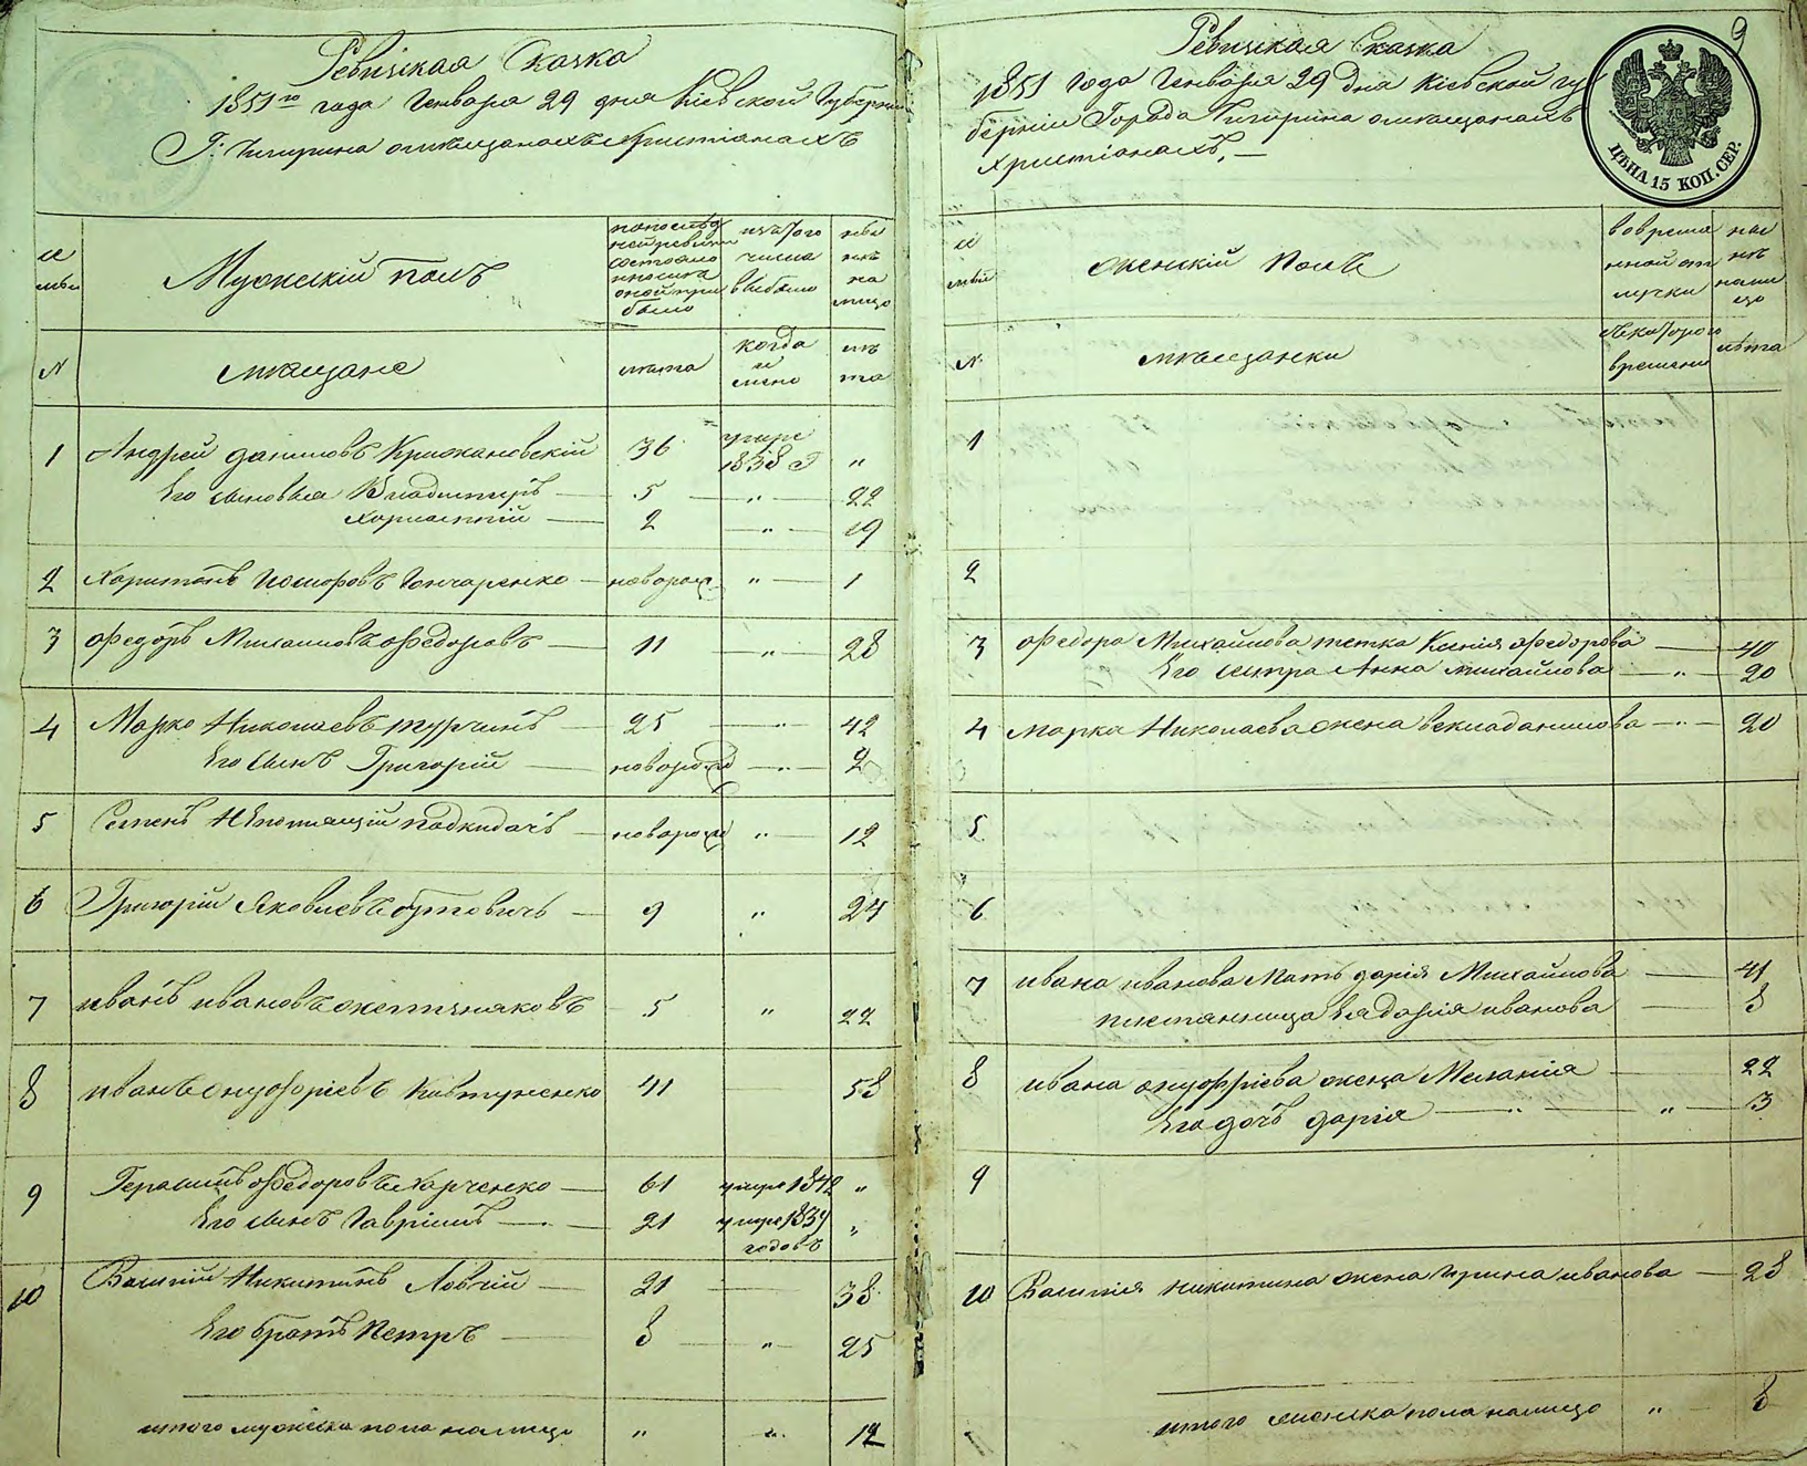 Ревизская Сказка
1851го года Генваря 29 дня Кіевской Губерніи
Г: Чигирина омѣщанахъ Христіанахъ
Мужескій полъ
по послѣд
ней ревизіи
состояло
и послѣ
оной при
было
изъ того
числа
выбыло
ны
нѣ
на
лицо
№
мѣщане
лѣта
когда
и
имено
лѣ
та
1 Андрей даниловъ Крижановскій 36 умре
1838 Г "
Его сыновья Владимиръ 5 " 22
2 " 19
2 Харитонъ Гончаренко новорож " 1
3 Федоръ Михаиловъ Федоровъ 11 " 28
4 Марко Николаевъ турчинъ 25 " 42
Его сынъ Григорій новорож " 2
5 Семенъ Непомнящій подкидачъ новорож " 12
6 Григорій Яковлевъ бутовичъ 9 " 24
7 иванъ ивановъ 5 " 22
8 иванъ онуфріевъ Ковтуненко 41 58
9 Герасимъ Федоровъ Харченко 61 умре 1842 "
Его сынъ Гавріилъ 21 умре 1839 "
годовъ
10 Василій Никитинъ Ловчій 21 38
Его братъ Петръ 8 " 25
итого мужеска пола налицо " " 12
9
Ревизская Сказка
1851 года Генваря 29 дня Кіевской гу
берніи Города Чигирина омѣщанахъ
Христіанахъ. —
ЦѢНА 15 КОП. СЕР.
женскій полъ
во време
нной от
лучки
ны
нѣ
нали
цо
№
мѣщанки
съ котораго
времени
лѣта
1
2
3 Федора Михайлова тетка Ксенія Федорова 40
Его сестра Анна михайлова " 20
4 марка Николаева жена данилова " 20
5
6
7 ивана иванова Мать дарія Михайлова 41
племянница иванова 8
8 ивана онуфріева жена Меланія 22
Его дочь дарія " " 3
9
10 Василія никитина жена Ирина иванова 28
итого женска пола налицо " 8